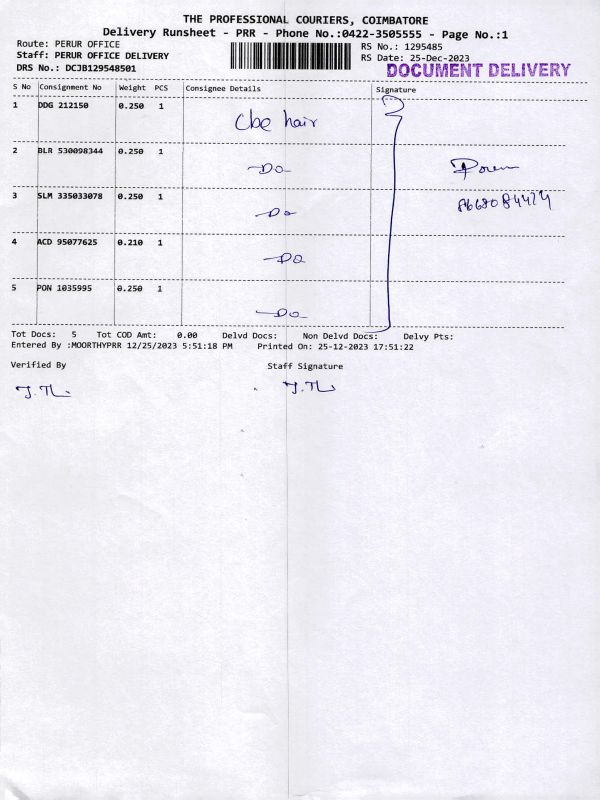 THE PROFESSIONAL COURIERS, COIMBATORE
Delivery Runsheet - PRR - Phone No.:0422-3505555 - Page No.:1
Route: PERUR OFFICE RS No.: 1295485
Staff: PERUR OFFICE DELIVERY RS Date: 25-Dec-2023
DRS No.: DCJB129548501 DOCUMENT DELIVERY
S No Consignment No Weight PCS Consignee Details Signature
1 DDG 212150 0.250 1 Cbe hair
2 BLR 530098344 0.250 1 -Do-
3 SLM 335033078 0.250 1 -Do
4 ACD 95077625 0.210 1 -Do
5 PON 1035995 0.250 1 -Do-
Tot Docs: 5 Tot COD Amt: 0.00 Delvd Docs: Non Delvd Docs: Delvy Pts:
Entered By :MOORTHYPRR 12/25/2023 5:51:18 PM Printed On: 25-12-2023 17:51:22
Verified By Staff Signature